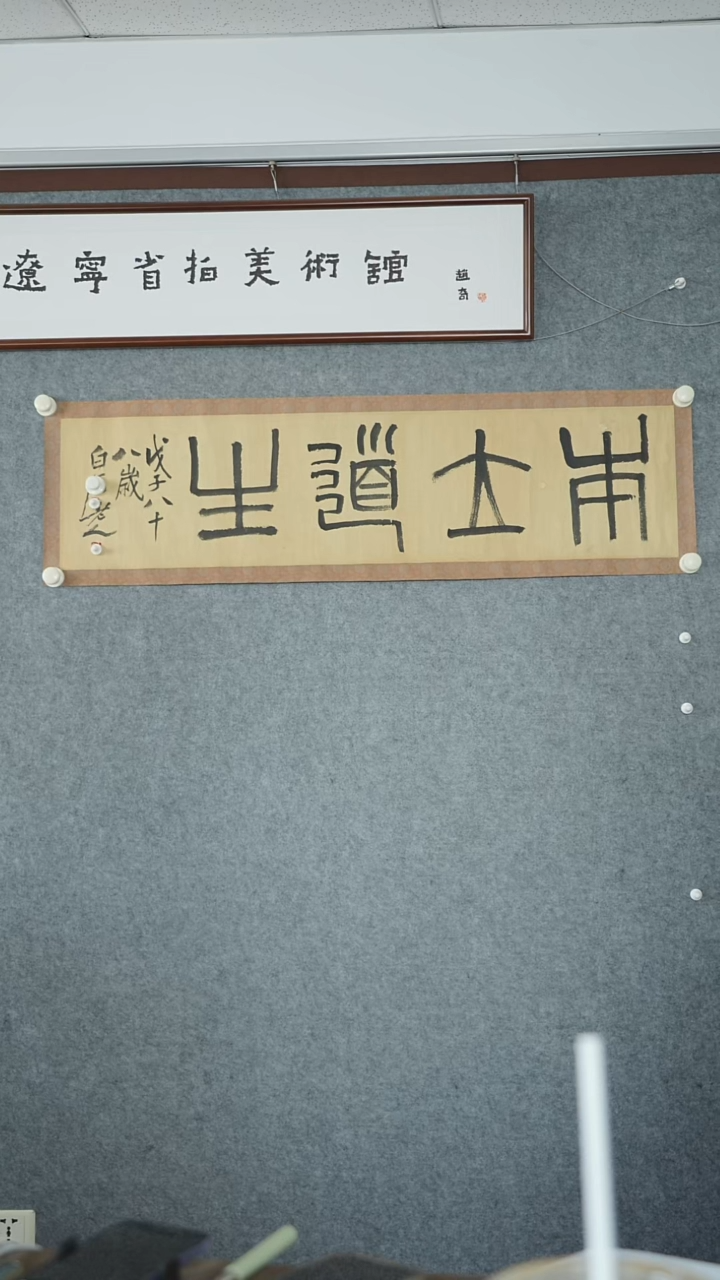 遼寧省拍美術館
趙奇
本立道生
戊子八十
八歲
白
老人